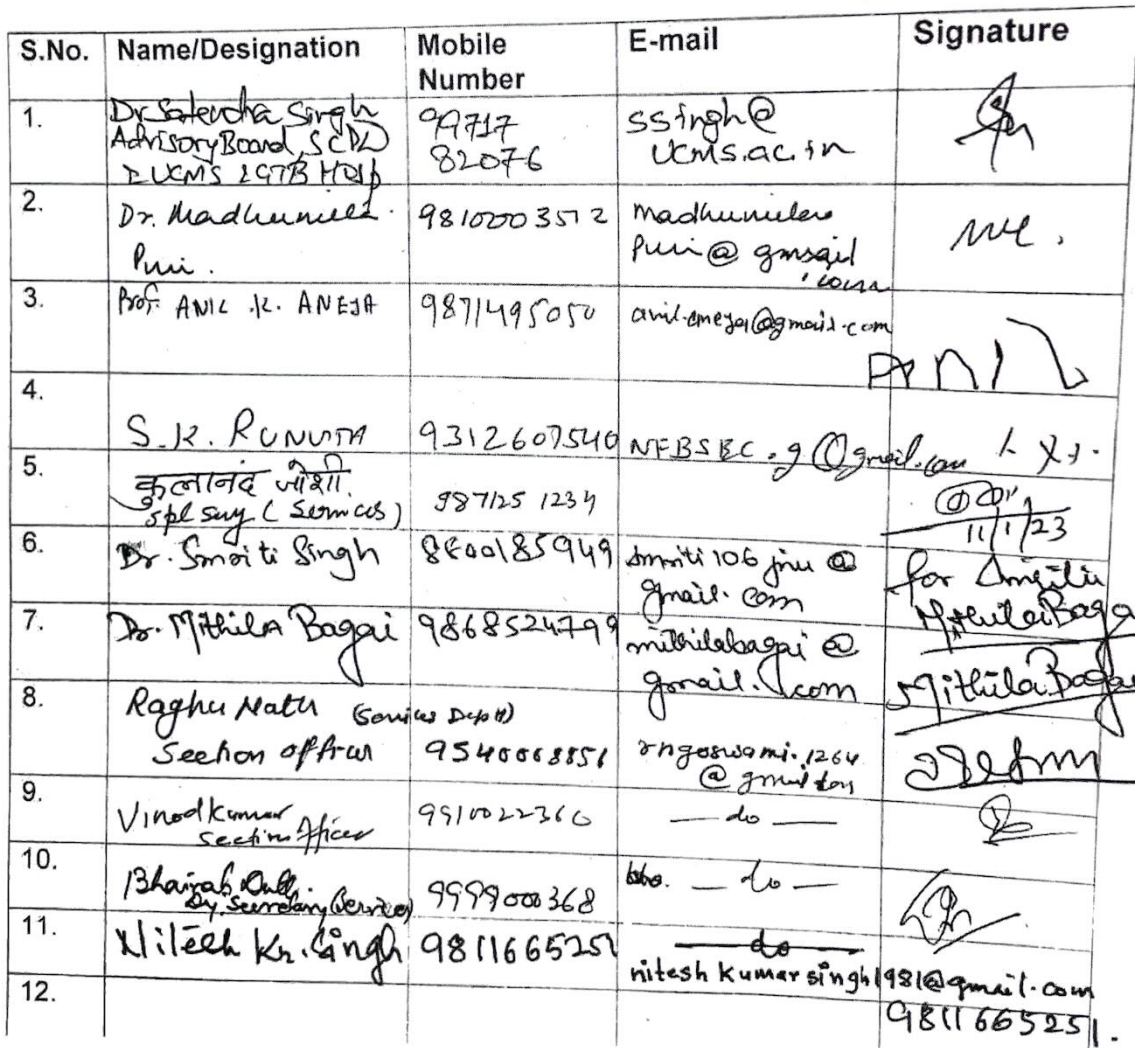 S.No. Name/Designation Mobile Number E-mail Signature
1. Dr. Satendra Singh
Advisory Board, SCPD
& UCMS & GTB Hosp
99717
82076
ssingh@
ucms.ac.in
2. Dr. Madhumita
Puri.
9810003512
Puri@gmail
.com
3. Prof. ANIL .K. ANEJA 9871495050 anil.aneja@gmail.com
ANIL
4. S.K. RUNGTA 9312607540 NFBSBC.g@gmail.com
5. कुलानंद जोशी
Spl Secy (Services)
987125 1234
11/1/23
6. Dr. Smriti Singh 8600185949 smriti106jnu@
gmail.com
for Smriti
Mithila Baga
7. Dr. Mithila Bagai 9868524799 mithilabagai@
gmail.com
Mithila Bagai
8. Raghu Nath (Services Deptt)
Section officer
9540068851
rngoswami.1264
@gmail.com
9. Vinod Kumar
Section Officer
9910022360
— do —
10. Bhairab Dutt.
Dy. Secretary (Services)
9999000368
— do —
11. Nitesh Kr. Singh 9811665251
do
nitesh kumar singh1981@gmail.com
12.
9811665251.